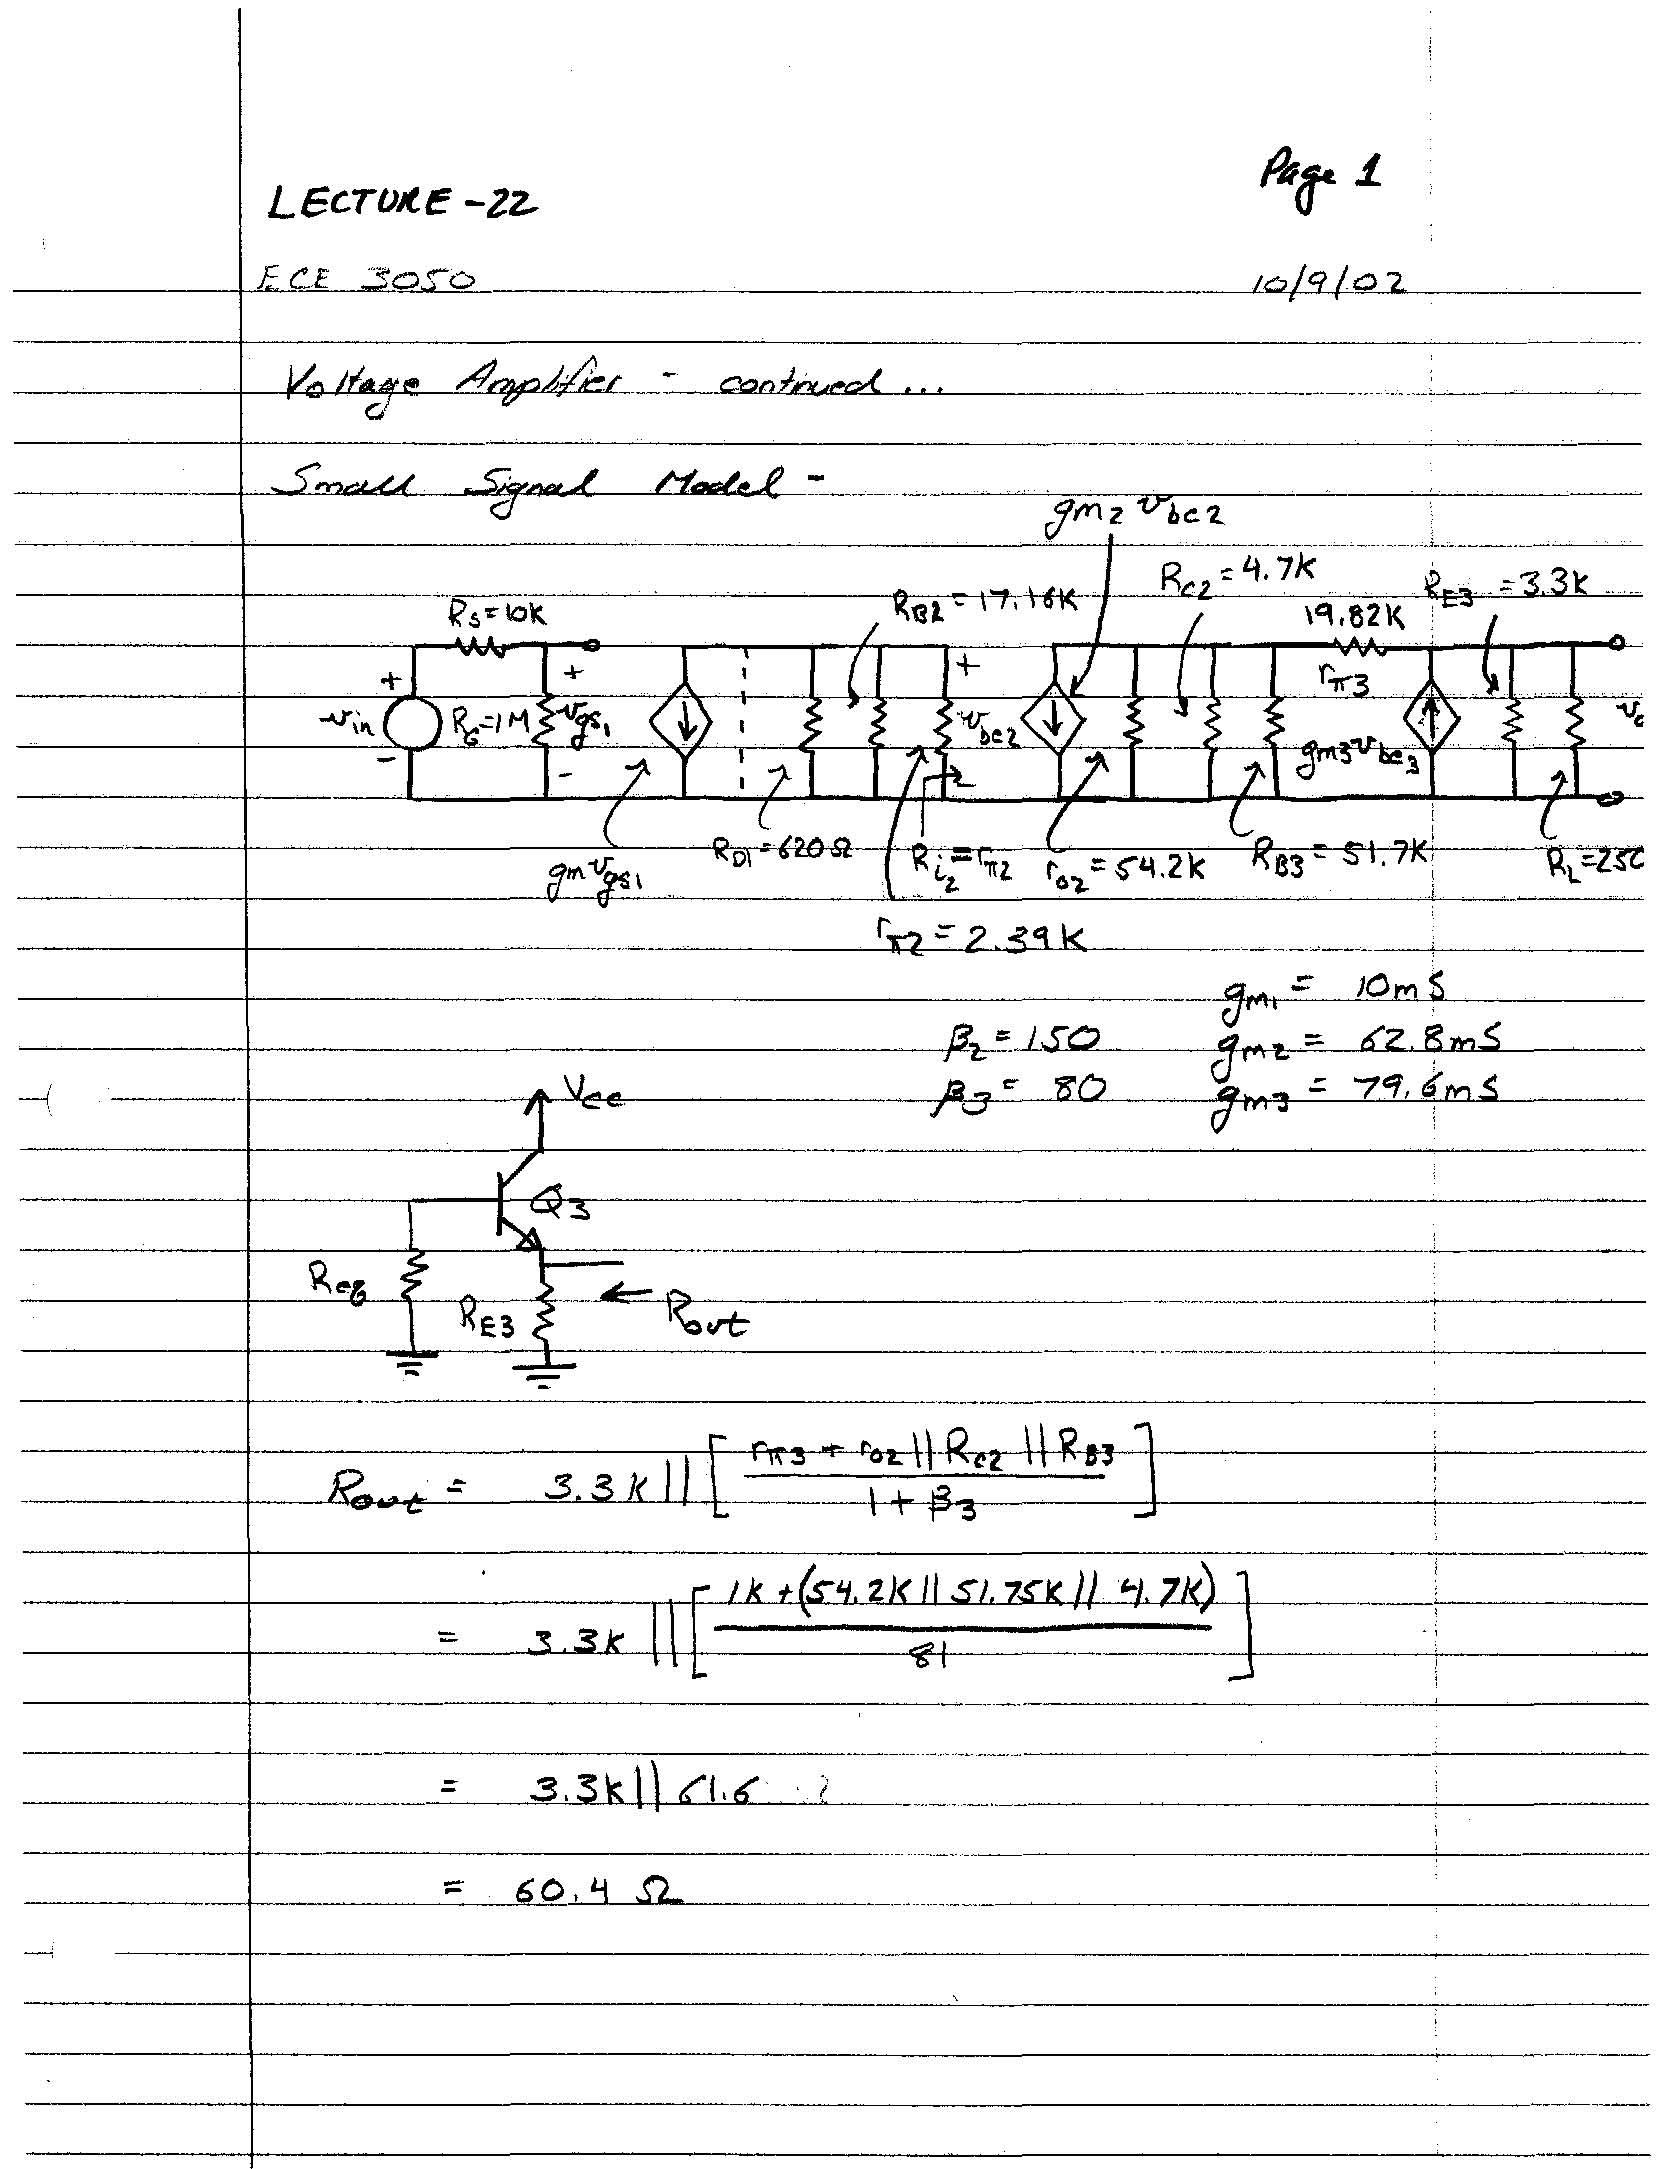 Page 1
LECTURE-22
ECE 3050 10/9/02
Voltage Amplifier - continued...
Small Signal Model -
gm2 vbe2
RC2 = 4.7K
RB2 = 17.16K
RE3 = 3.3K
RS = 10K
19.82K
rπ3
+ + +
vin RG = 1M vgs1 vbe2 gm3vbe3
- -
gmvgs1 RD1 = 620Ω Ri2 = rπ2 ro2 = 54.2K RB3 = 51.7K
rπ2 = 2.39K
gm1 = 10mS
β2 = 150 gm2 = 62.8mS
β3 = 80 gm3 = 79.6mS
Vcc
Q3
Req
RE3 Rout
Rout = 3.3K || [ (rπ3 + ro2 || RC2 || RB3) / (1 + β3) ]
= 3.3K || [ (1K + (54.2K || 51.75K || 4.7K)) / 81 ]
= 3.3K || 61.6
= 60.4 Ω